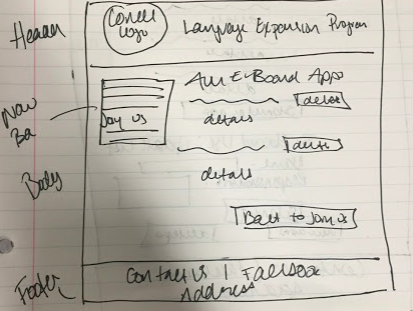 Header
Cornell
Logo
Language Expansion Program
Nav
Ba
Join us
All E-Board Apps
delete
details
delete
details
Body
Back to Join us
Footer
Contact Us | Facebook
Address